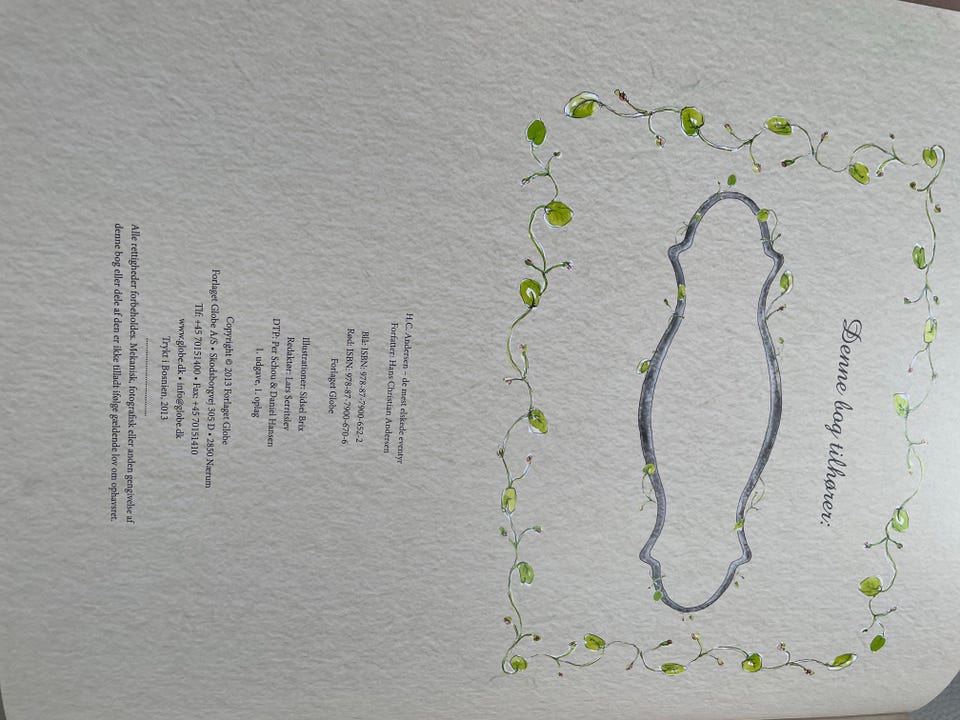 Denne bog tilhører:
H.C. Andersen – de mest elskede eventyr
Forfatter: Hans Christian Andersen
Blå: ISBN: 978-87-7900-652-2
Rød: ISBN: 978-87-7900-670-6
Forlaget Globe
Illustrationer: Sidsel Brix
Redaktør: Lars Serritslev
DTP: Per Schou & Daniel Hansen
1. udgave, 1. oplag
Copyright © 2013 Forlaget Globe
Forlaget Globe A/S • Skodsborgvej 305 D • 2850 Nærum
Tlf: +45 70151400 • Fax: +45 70151410
www.globe.dk • info@globe.dk
Trykt i Bosnien, 2013
Alle rettigheder forbeholdes. Mekanisk, fotografisk eller anden gengivelse af
denne bog eller dele af den er ikke tilladt ifølge gældende lov om ophavsret.